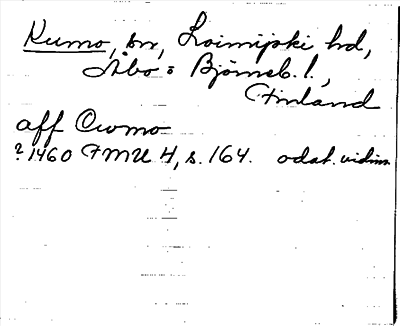 Kumo, sn, Loimijoki hd,
Åbo o Björneb. l.,
Finland
aff Cwmo
? 1460 FMU 4, s. 164. odat. vidim.